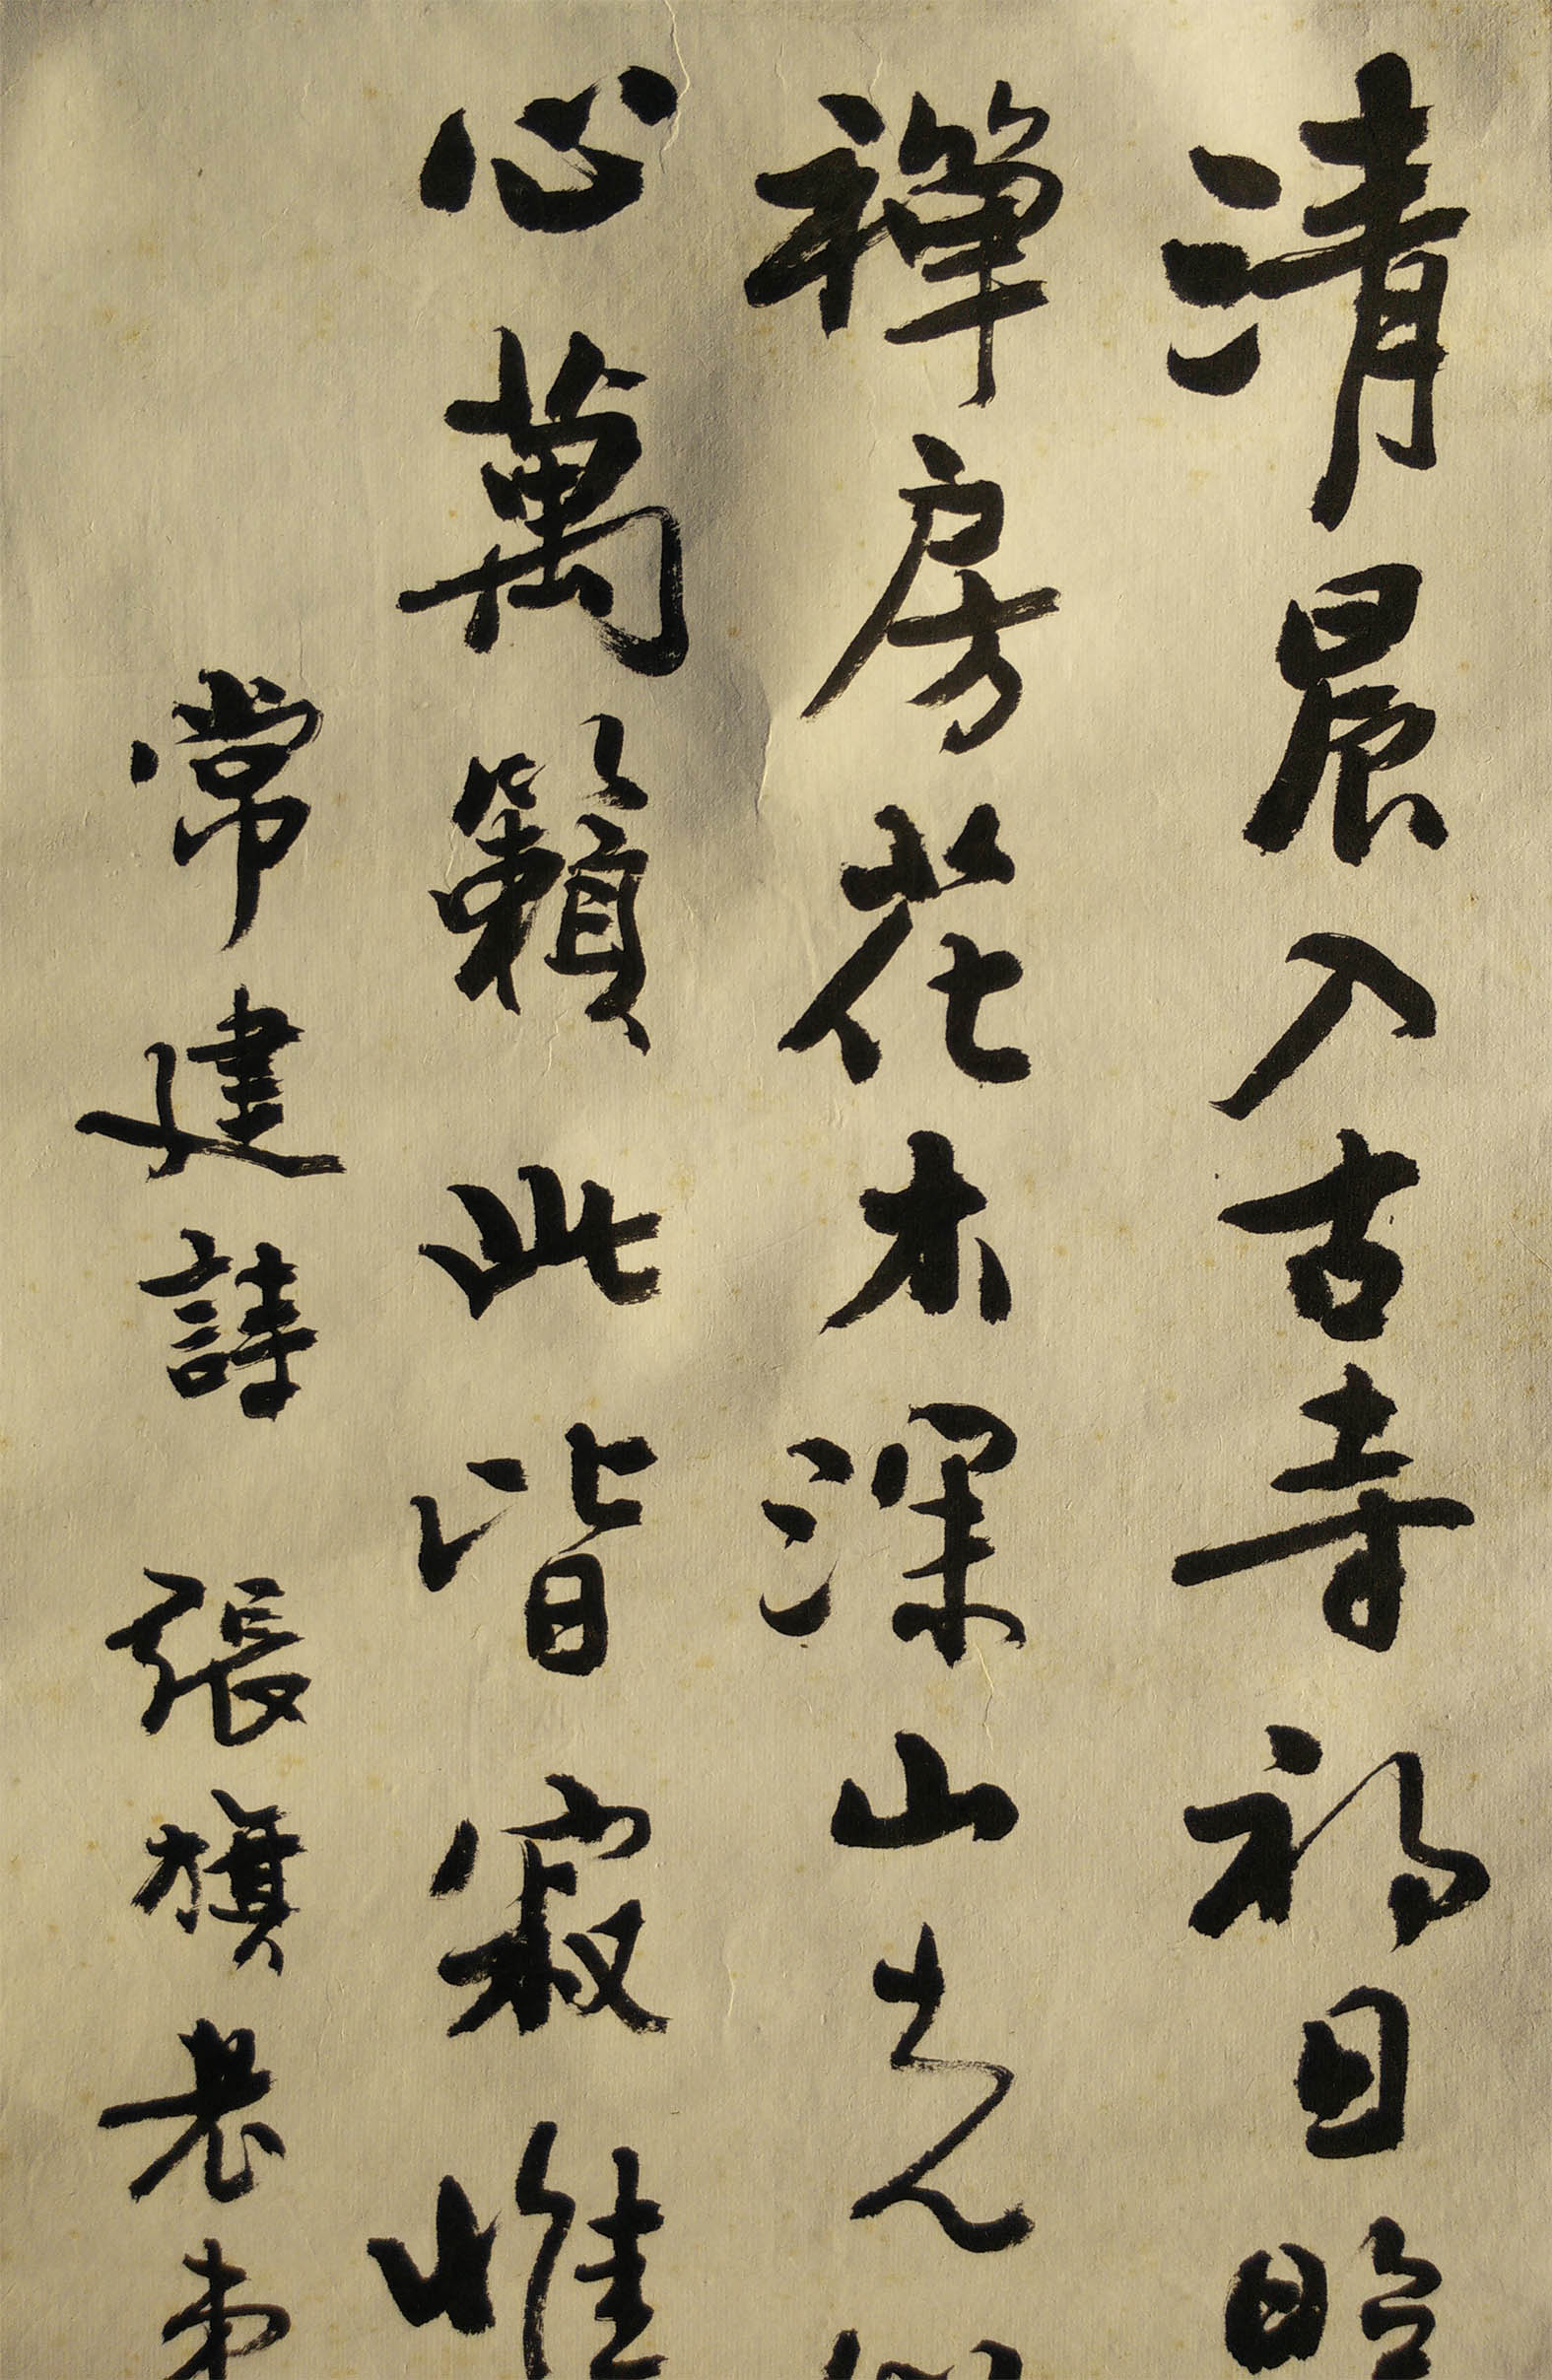 清晨入古寺初日照
禪房花木深山光
心萬籟此皆寂惟
常建詩 張旗老弟